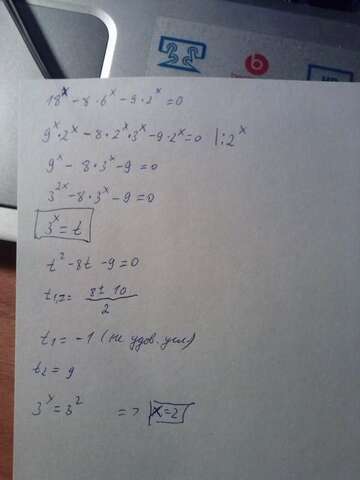 18^x - 8·6^x - 9·2^x = 0
9^x·2^x - 8·2^x·3^x - 9·2^x = 0 |:2^x
9^x - 8·3^x - 9 = 0
3^2x - 8·3^x - 9 = 0
3^x = t
t^2 - 8t - 9 = 0
t1,2 = (8 ± 10)/2
t1 = -1 (не удов. усл)
t2 = 9
3^x = 3^2 => x = 2
beats